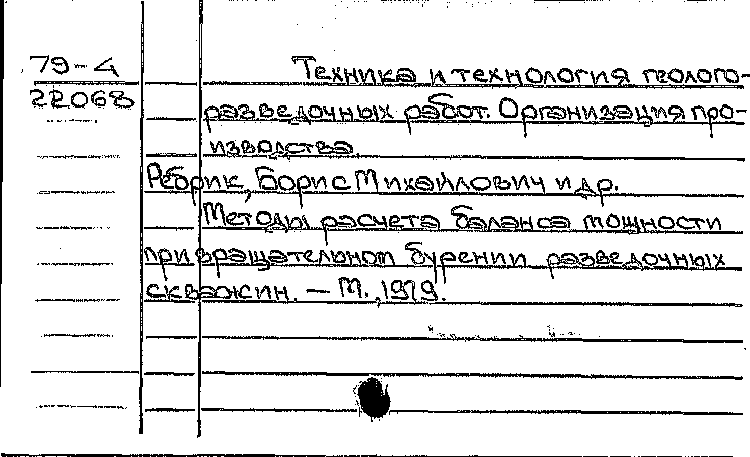 79-4 Техника и технология геолого-
22068 разведочных работ. Организация про-
изводства.
Ребрик, Борис Михайлович и др.
Методы расчета баланса мощности
при вращательном бурении разведочных
скважин. — М., 1979.